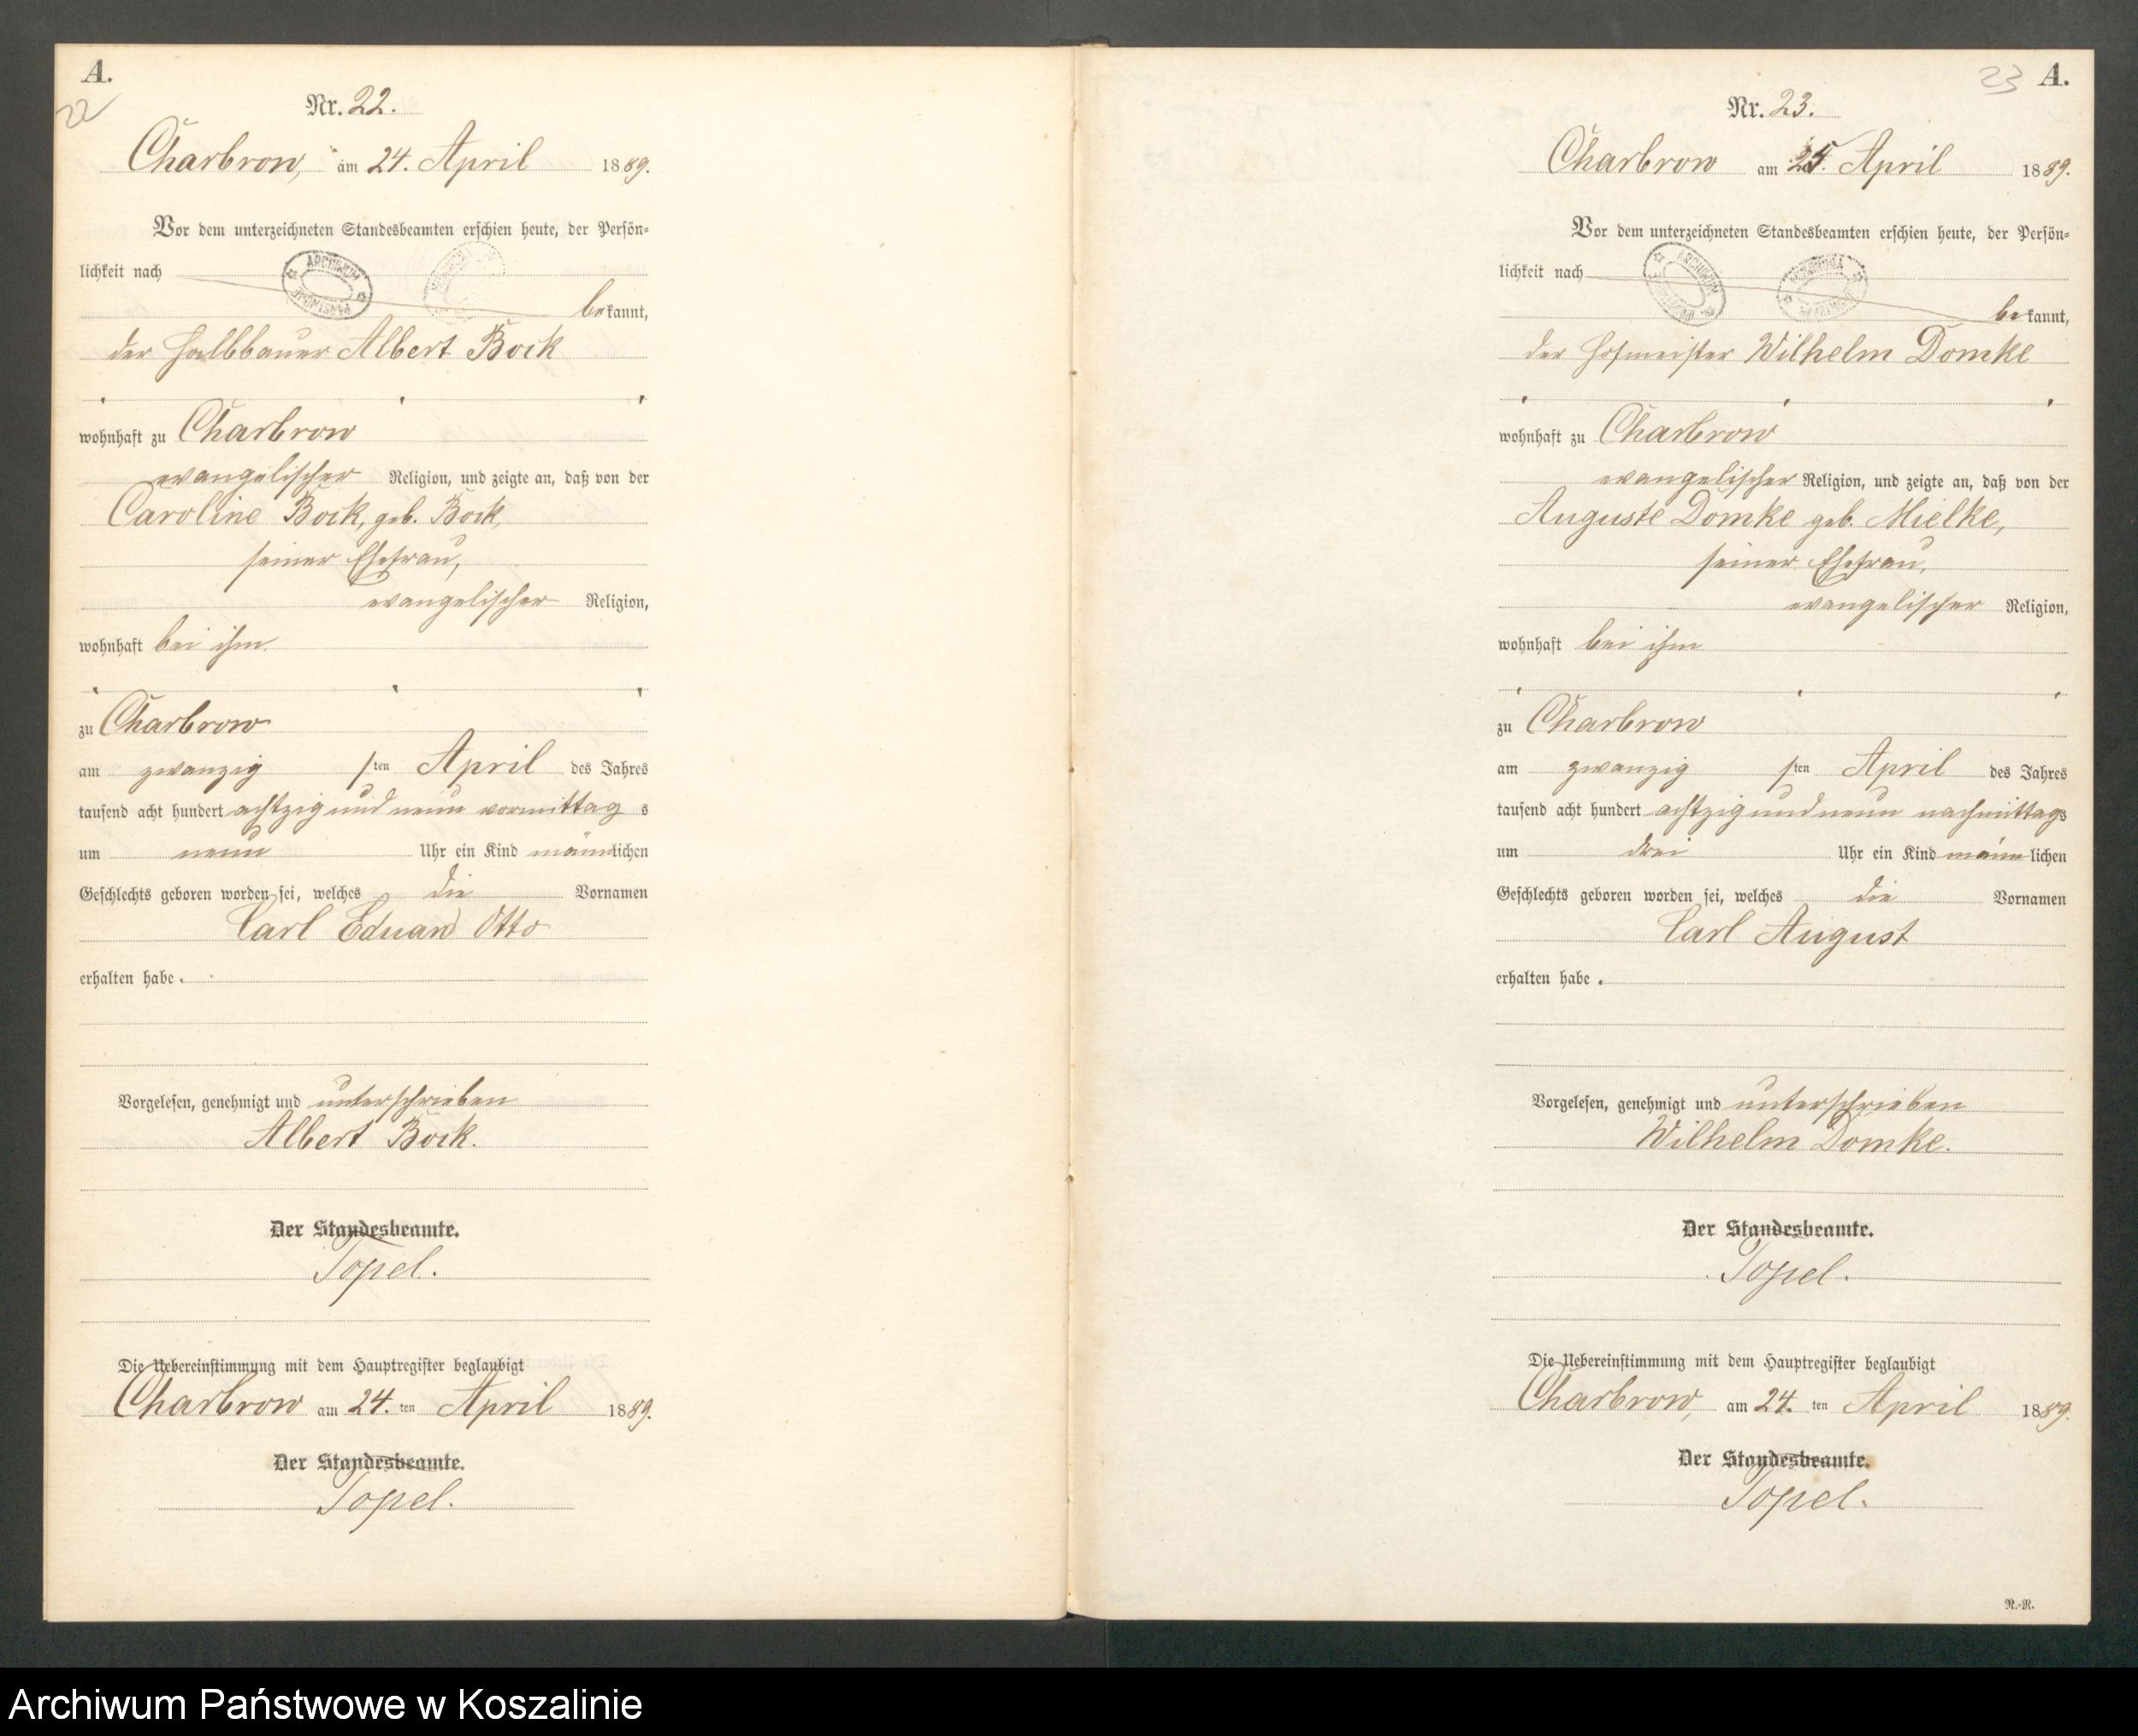 A.
22
Nr. 22.
Charbrow, am 24. April 1889.
Vor dem unterzeichneten Standesbeamten erschien heute, der Persön-
lichkeit nach
bekannt,
der Halbbauer Albert Bock
wohnhaft zu Charbrow
evangelischer Religion, und zeigte an, daß von der
Caroline Bock, geb. Bock,
seiner Ehefrau,
evangelischer Religion,
wohnhaft bei ihm
zu Charbrow
am zwanzigsten April des Jahres
tausend acht hundert achtzig und neun vormittags
um neun Uhr ein Kind männlichen
Geschlechts geboren worden sei, welches die Vornamen
Carl Eduard Otto
erhalten habe.
Vorgelesen, genehmigt und unterschrieben
Albert Bock.
Der Standesbeamte.
Topel.
Die Uebereinstimmung mit dem Hauptregister beglaubigt
Charbrow am 24. ten April 1889.
Der Standesbeamte.
Topel.
23 A.
Nr. 23.
Charbrow am 25. April 1889.
Vor dem unterzeichneten Standesbeamten erschien heute, der Persön-
lichkeit nach
bekannt,
der Hofmeister Wilhelm Domke
wohnhaft zu Charbrow
evangelischer Religion, und zeigte an, daß von der
Auguste Domke geb. Mielke,
seiner Ehefrau,
evangelischer Religion,
wohnhaft bei ihm
zu Charbrow
am zwanzigsten April des Jahres
tausend acht hundert achtzig und neun nachmittags
um drei Uhr ein Kind männlichen
Geschlechts geboren worden sei, welches die Vornamen
Carl August
erhalten habe.
Vorgelesen, genehmigt und unterschrieben
Wilhelm Domke.
Der Standesbeamte.
Topel.
Die Uebereinstimmung mit dem Hauptregister beglaubigt
Charbrow, am 24. ten April 1889.
Der Standesbeamte.
Topel.
R.-R.
Archiwum Państwowe w Koszalinie